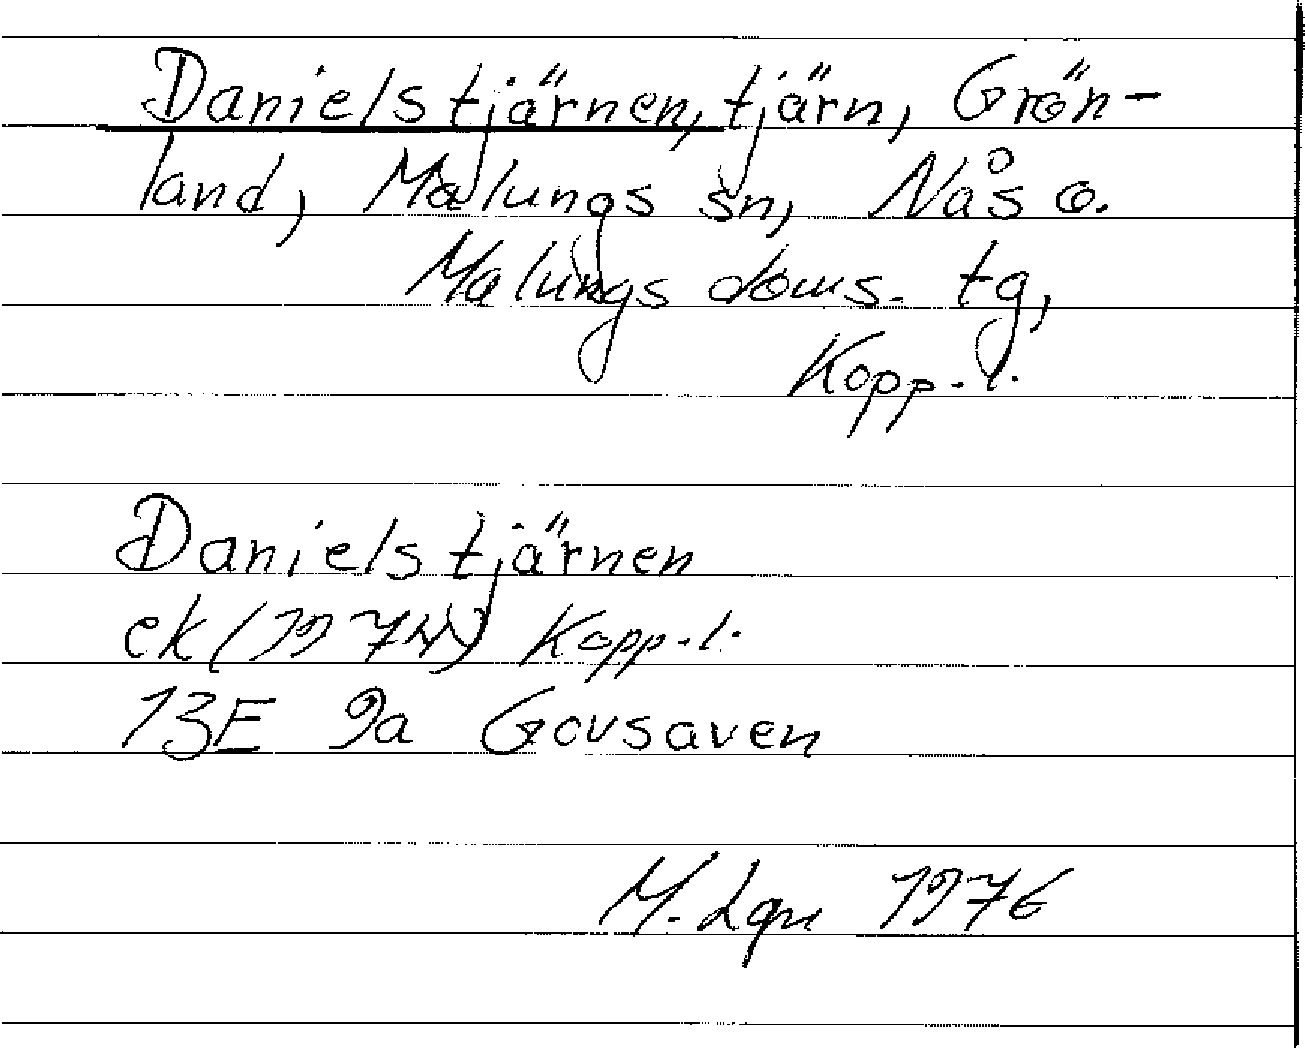 Danielstjärnen, tjärn, Grön-
land, Malungs sn, Nås o.
Malungs doms. tg,
Kopp. l.
Danielstjärnen
ek (1974) Kopp. l.
13E 9a Govsaven
M. Lgn 1976